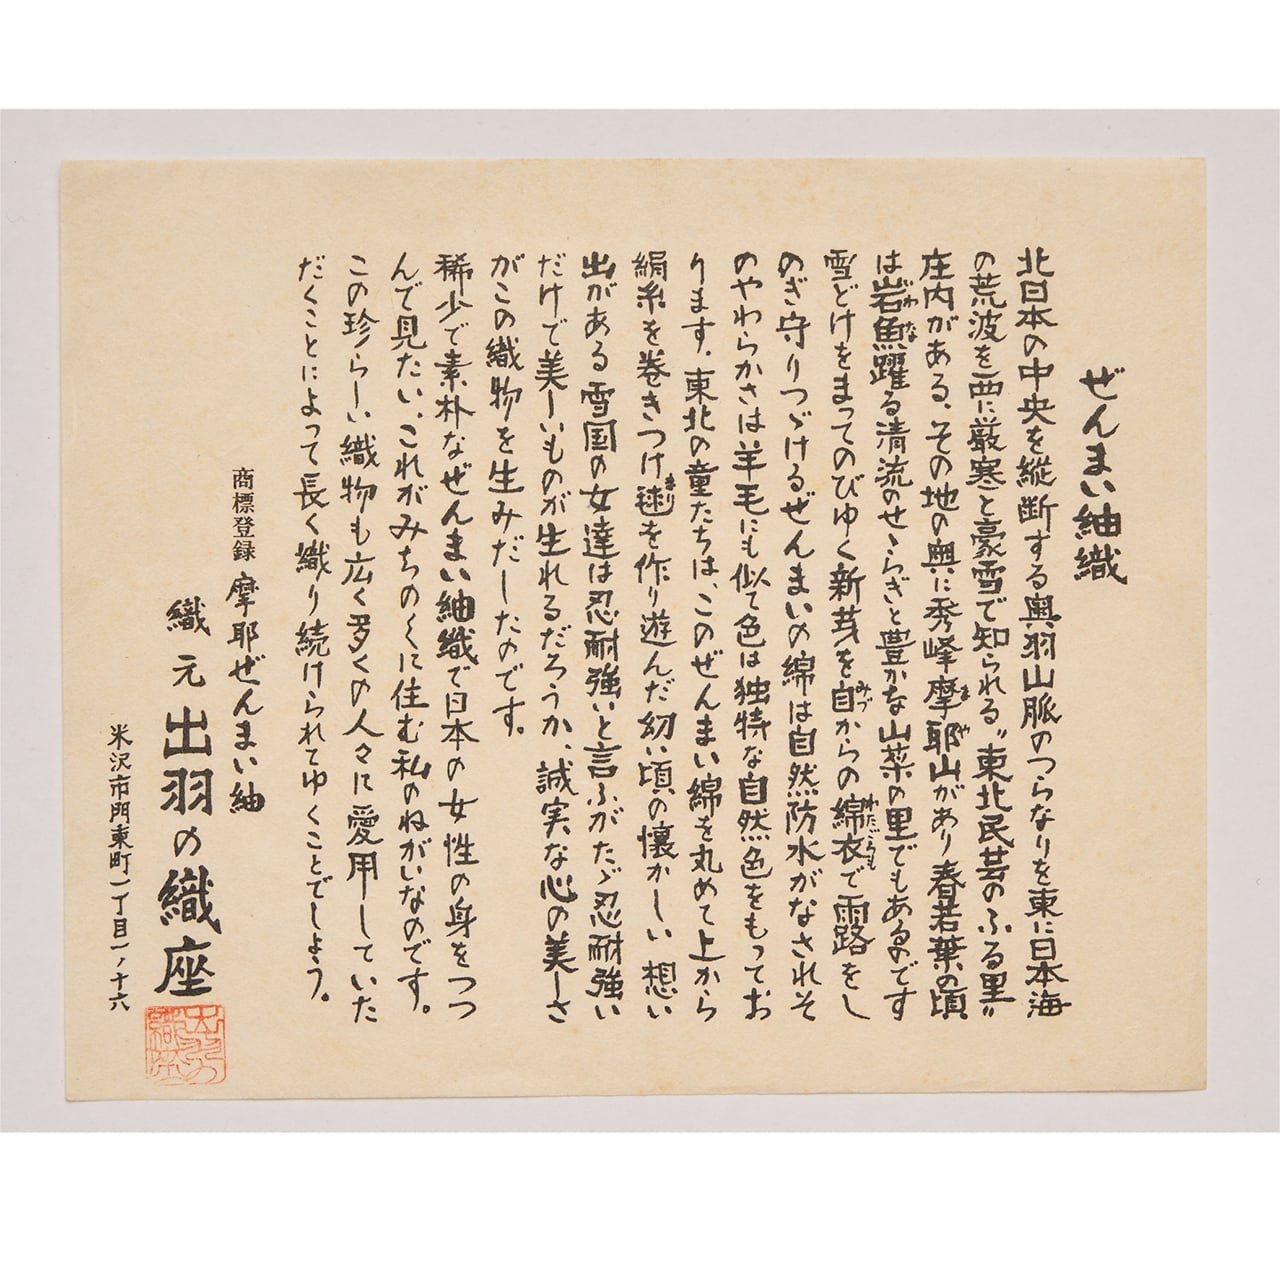 ぜんまい紬織
北日本の中央を縦断する奥羽山脈のつらなりを東に日本海
の荒波を西に厳寒と豪雪で知られる〝東北民芸のふる里〟
庄内がある、その地の奥に秀峰摩耶山があり春若葉の頃
は岩魚躍る清流のせゝらぎと豊かな山菜の里でもあるのです
雪どけをまってのびゆく新芽を自からの綿衣で雨露をし
のぎ守りつゞけるぜんまいの綿は自然防水がなされそ
のやわらかさは羊毛にも似て色は独特な自然色をもってお
ります、東北の童たちは、このぜんまい綿を丸めて上から
絹糸を巻きつけ毬を作り遊んだ幼い頃の懐かしい想い
出がある 雪国の女達は忍耐強いと言ふがたゞ忍耐強い
だけで美しいものが生れるだろうか、誠実な心の美しさ
がこの織物を生みだしたのです。
稀少で素朴なぜんまい紬織で日本の女性の身をつつ
んで見たい、これがみちのくに住む私のねがいなのです。
この珍らしい織物も広く多くの人々に愛用していた
だくことによって長く織り続けられてゆくことでしょう。
商標登録 摩耶ぜんまい紬
織元 出羽の織座
米沢市門東町一丁目一ノ十六
出羽の織座